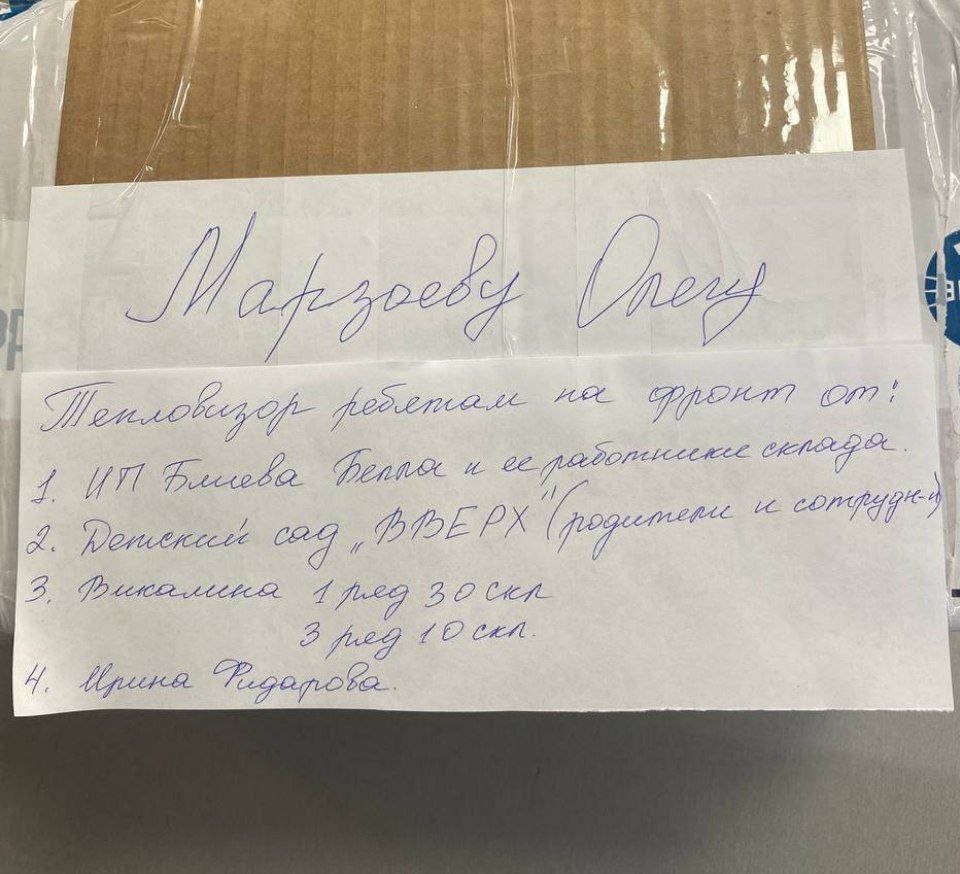 Марзоеву Олегу
Тепловизор ребятам на фронт от:
1. ИП Блиева Белла и ее работники склада.
2. Детский сад „ВВЕРХ" (родители и сотрудн-и)
3. Викалина 1 ряд 30 скл
3 ряд 10 скл.
4. Ирина Фидарова.